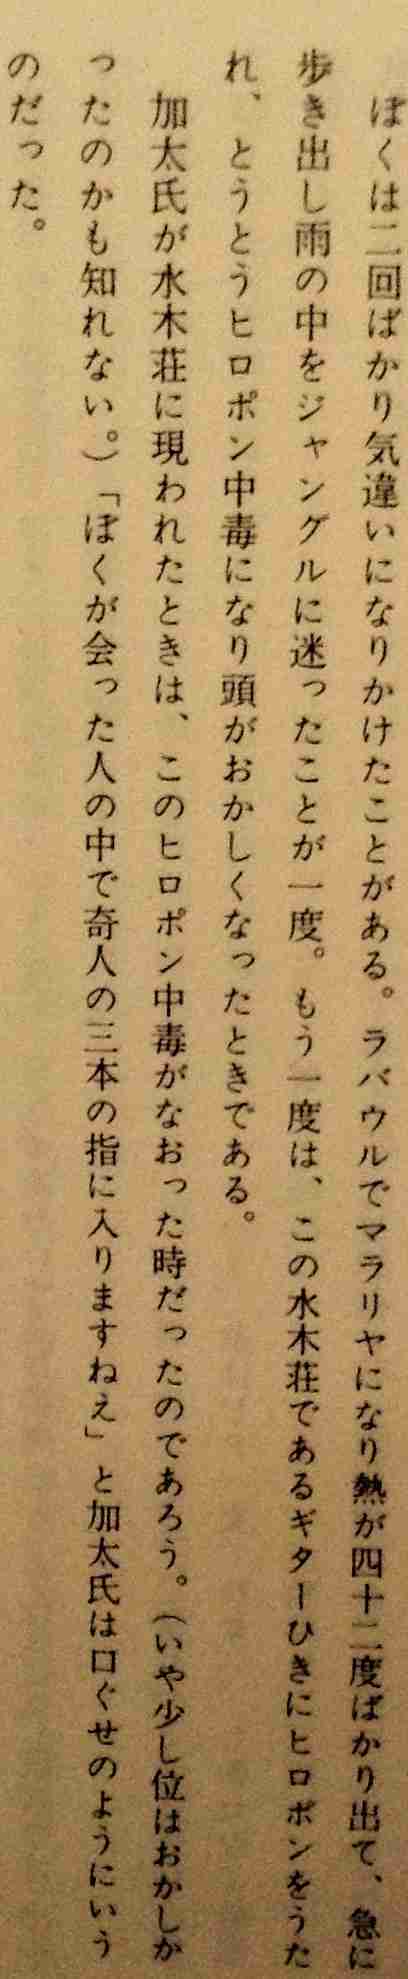 ぼくは二回ばかり気違いになりかけたことがある。ラバウルでマラリヤになり熱が四十二度ばかり出て、急に
歩き出し雨の中をジャングルに迷ったことが一度。もう一度は、この水木荘であるギターひきにヒロポンをうた
れ、とうとうヒロポン中毒になり頭がおかしくなったときである。
加太氏が水木荘に現われたときは、このヒロポン中毒がなおった時だったのであろう。（いや少し位はおかしか
ったのかも知れない。）「ぼくが会った人の中で奇人の三本の指に入りますねえ」と加太氏は口ぐせのようにいう
のだった。